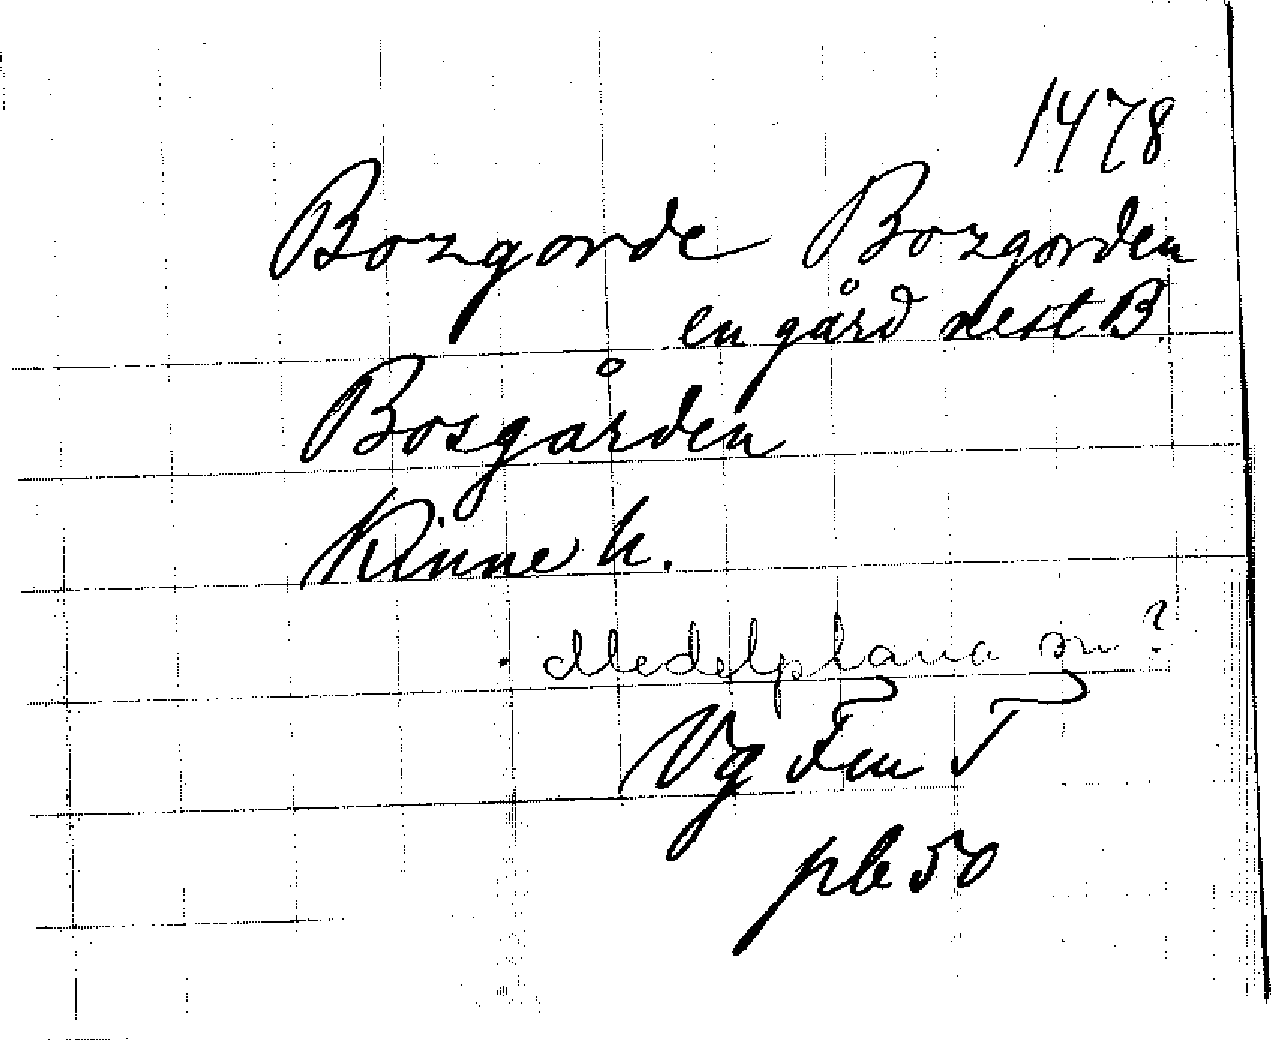 1478
Bozgorde Bozgorden
en gård nest B
Bosgården
Kinne h.
Medelplana sn?
Vg Fru T
pb 50